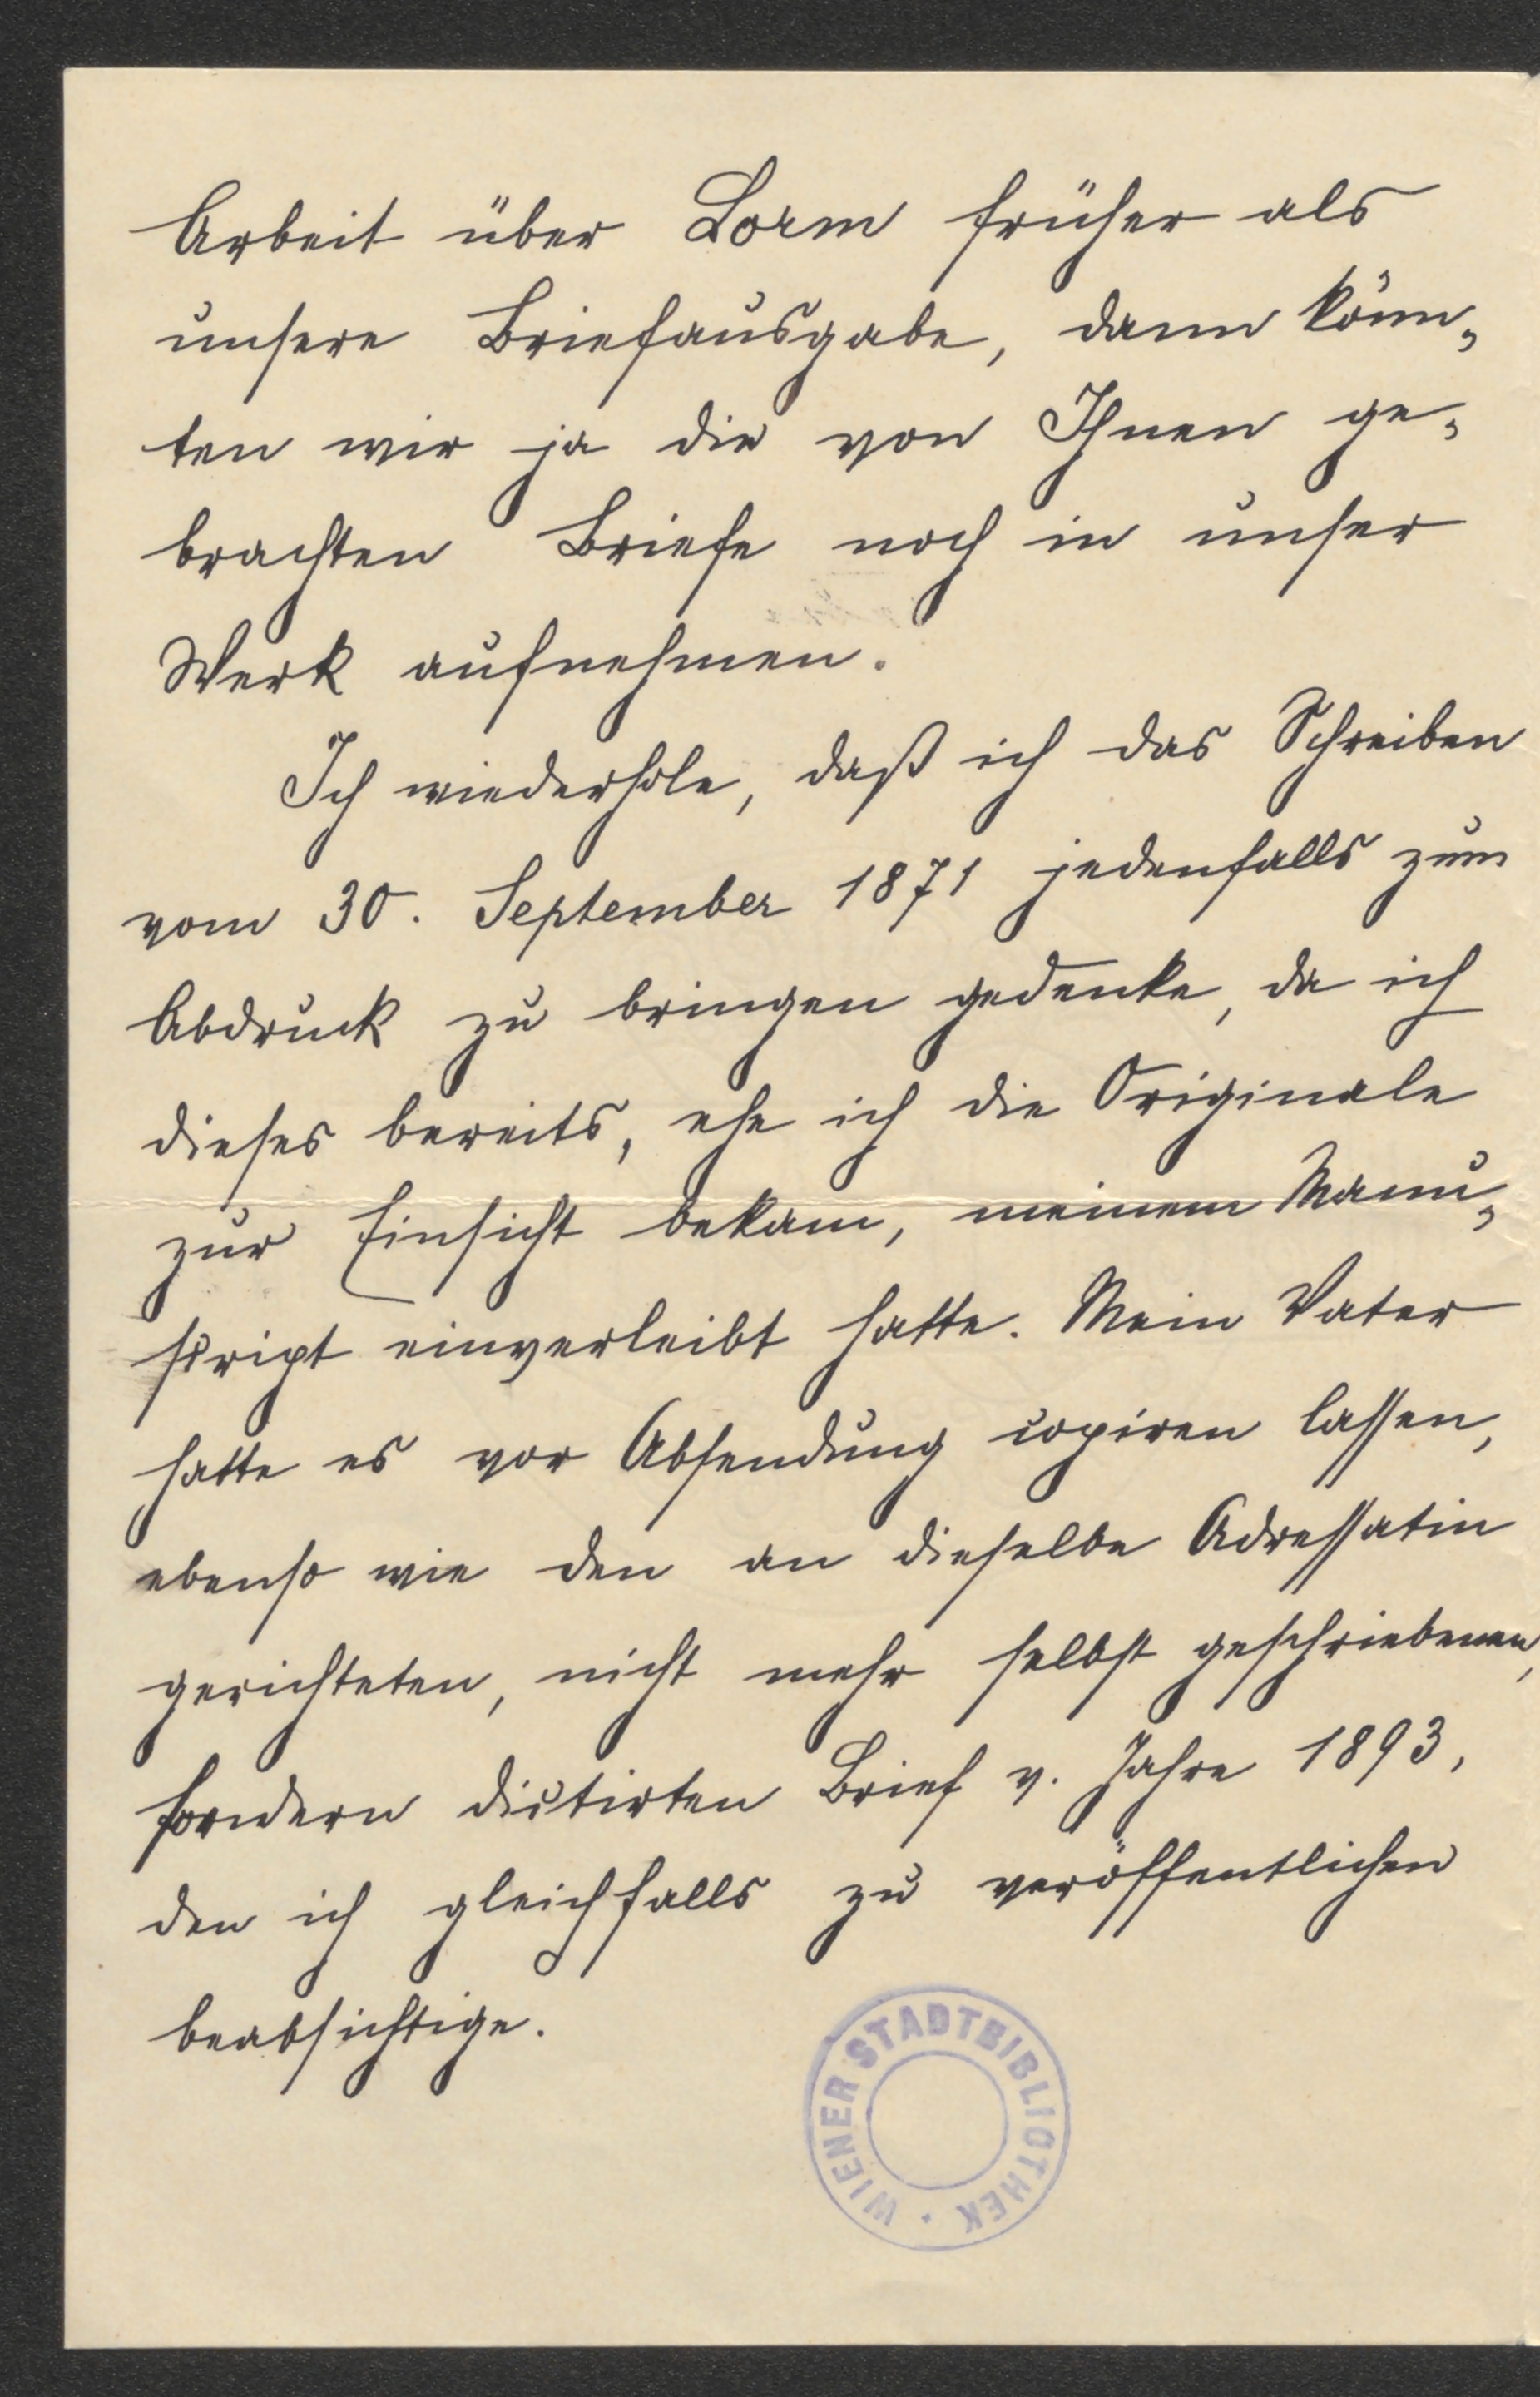 Arbeit über Lorm früher als
unsere Briefausgabe, dann könn-
ten wir ja die von Ihnen ge-
brachten Briefe noch in unser
Werk aufnehmen.
Ich wiederhole, daß ich das Schreiben
vom 30. September 1871 jedenfalls zum
Abdruck zu bringen gedenke, da ich
dieses bereits, ehe ich die Originale
zur Einsicht bekam, meinem Manu-
skript einverleibt hatte. Mein Vater
hatte es vor Absendung copiren lassen,
ebenso wie den an dieselbe Adressatin
gerichteten, nicht mehr selbst geschriebenen,
sondern dictirten Brief v. Jahre 1893,
den ich gleichfalls zu veröffentlichen
beabsichtige.
WIENER STADTBIBLIOTHEK